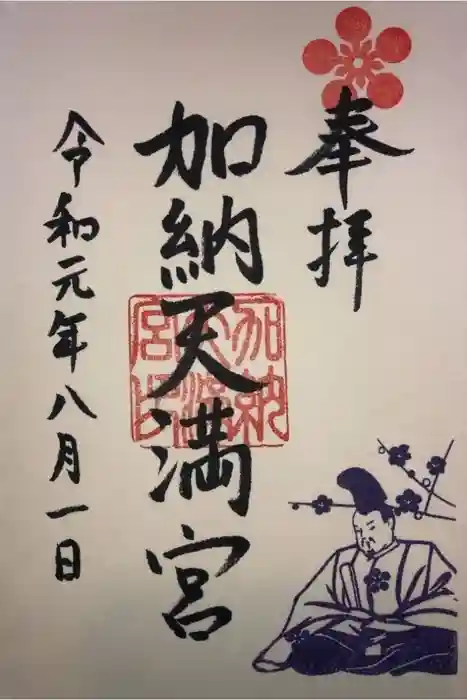 奉拝
加納天満宮
令和元年八月一日
加納
天満
宮印